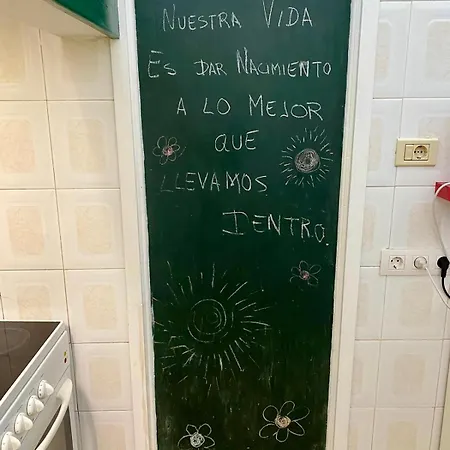 NUESTRA VIDA
ES DAR NACIMIENTO
A LO MEJOR
QUE
LLEVAMOS
DENTRO.